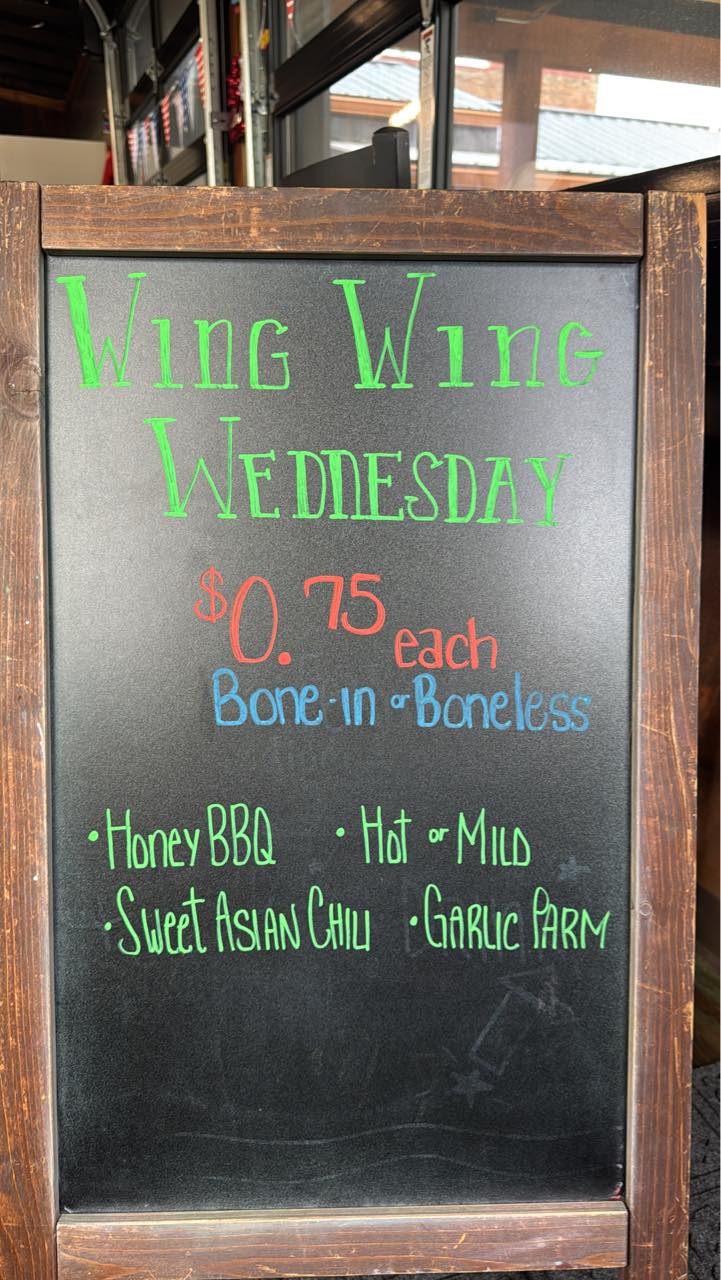 Wing Wing
Wednesday
$0.75 each
Bone-in or Boneless
•Honey BBQ •Hot or Mild
•Sweet Asian Chili •Garlic Parm